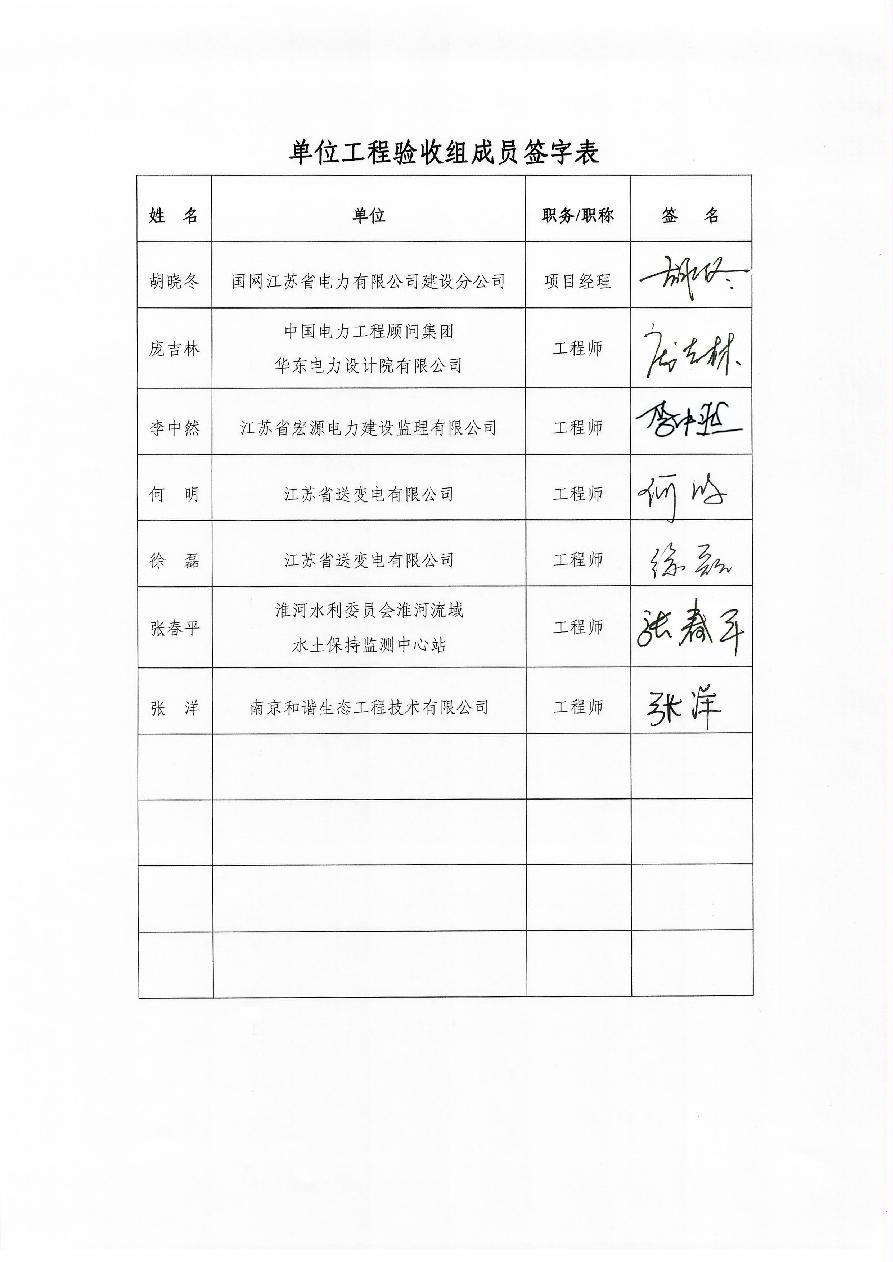 单位工程验收组成员签字表
姓 名 单位 职务/职称 签 名
胡晓冬 国网江苏省电力有限公司建设分公司 项目经理 胡晓冬
庞吉林 中国电力工程顾问集团
华东电力设计院有限公司 工程师 庞吉林
李中然 江苏省宏源电力建设监理有限公司 工程师 李中然
何 明 江苏省送变电有限公司 工程师 何明
徐 磊 江苏省送变电有限公司 工程师 徐磊
张春平 淮河水利委员会淮河流域
水土保持监测中心站 工程师 张春平
张 洋 南京和谐生态工程技术有限公司 工程师 张洋